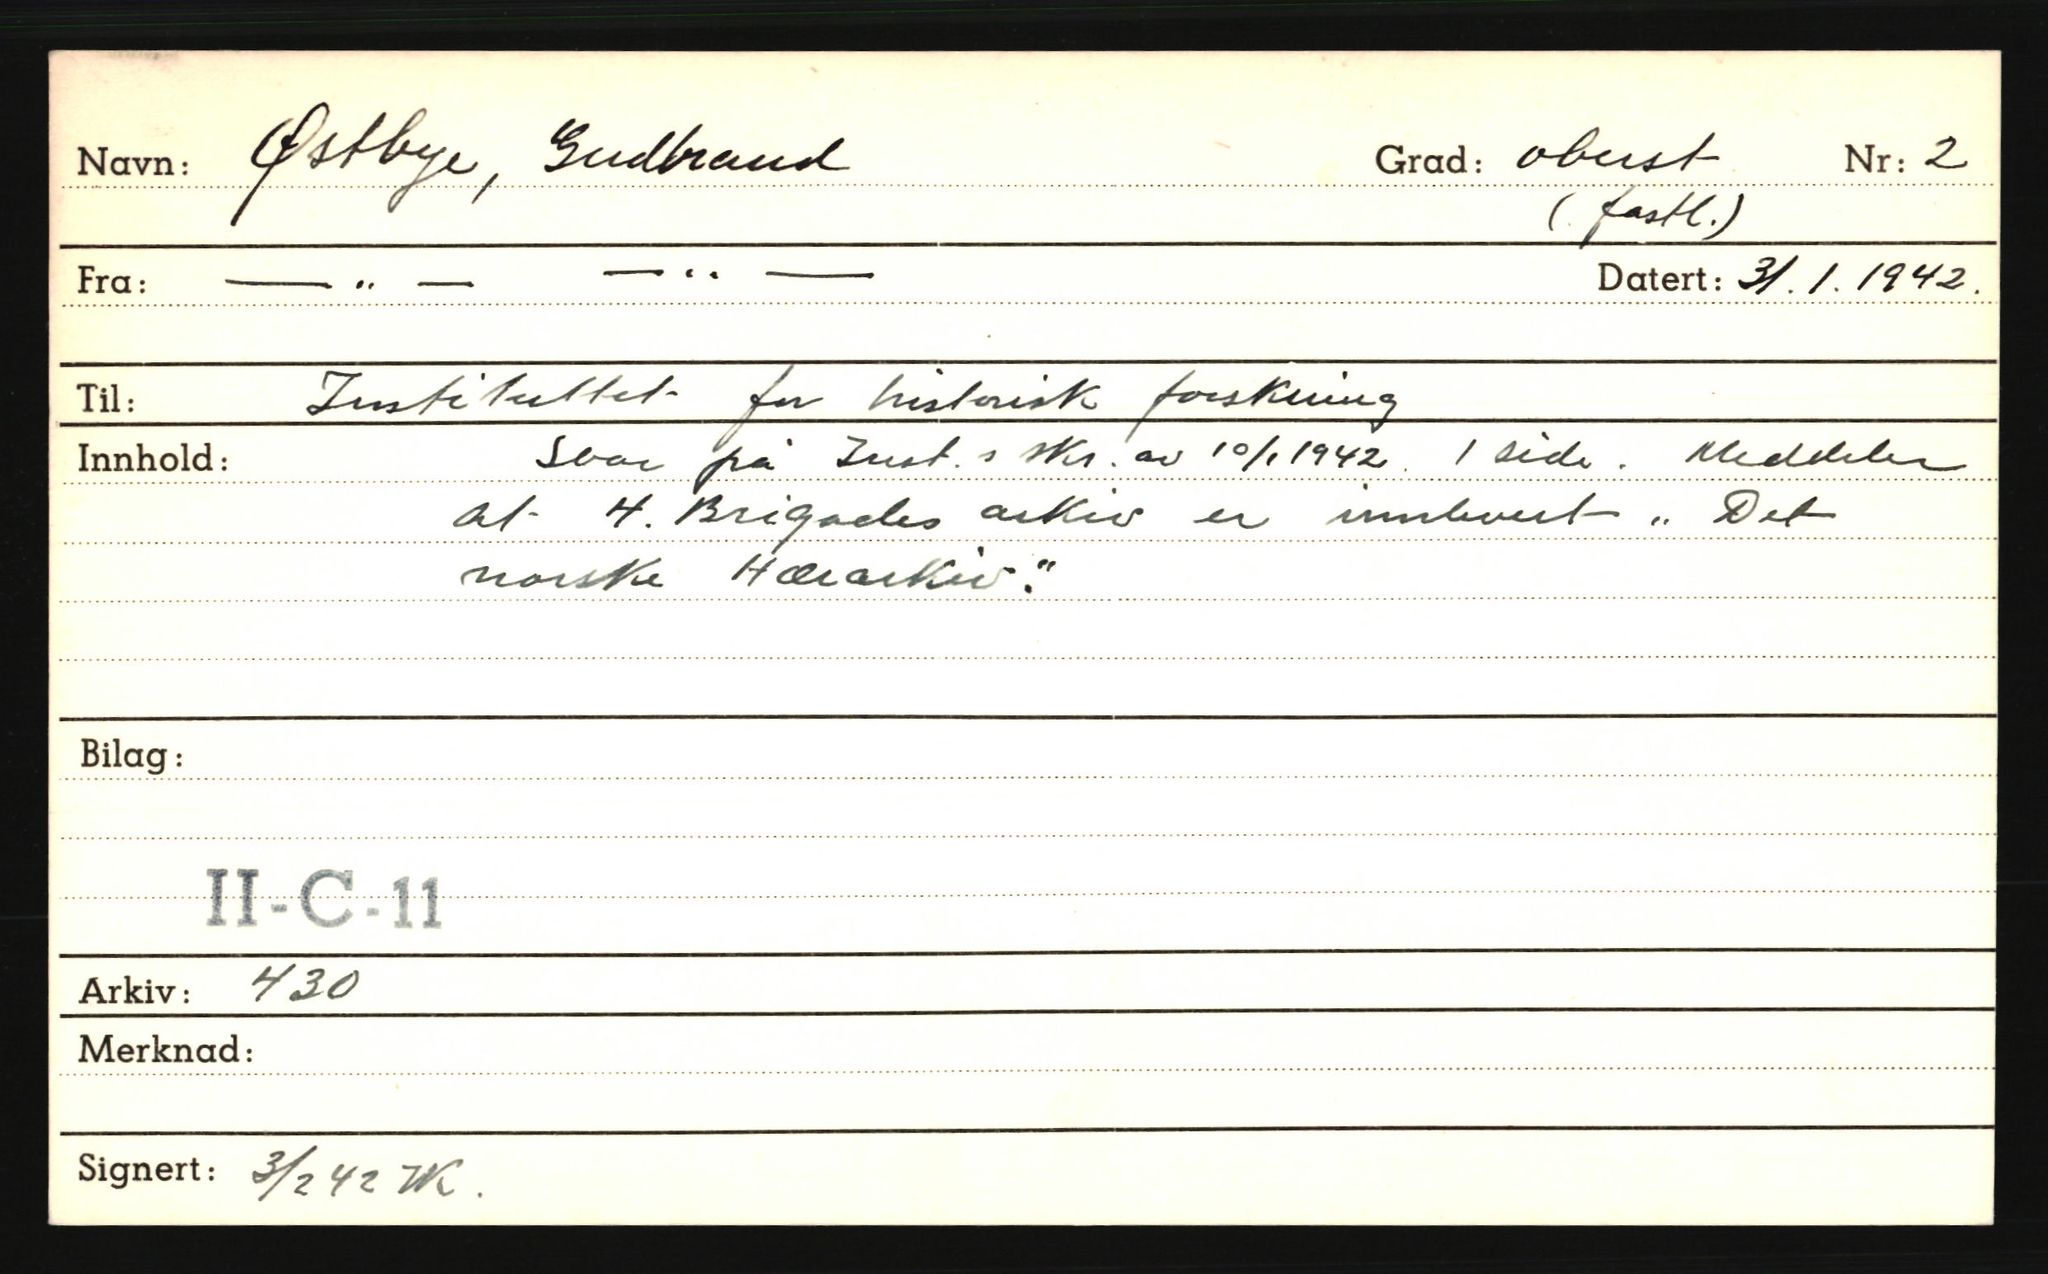 Navn: Østbye, Gudbrand Grad: oberst Nr: 2
(fastl.)
Fra: — " — — " — Datert: 31.1.1942.
Til: Instituttet for historisk forskning
Innhold: Svar på Inst.s skr. av 10/1 1942. 1 side. Meddeler
at 4. Brigades arkiv er innlevert „Det
norske Hærarkiv."
Bilag:
II-C-11
Arkiv: 430
Merknad:
Signert: 3/2 42 WK.